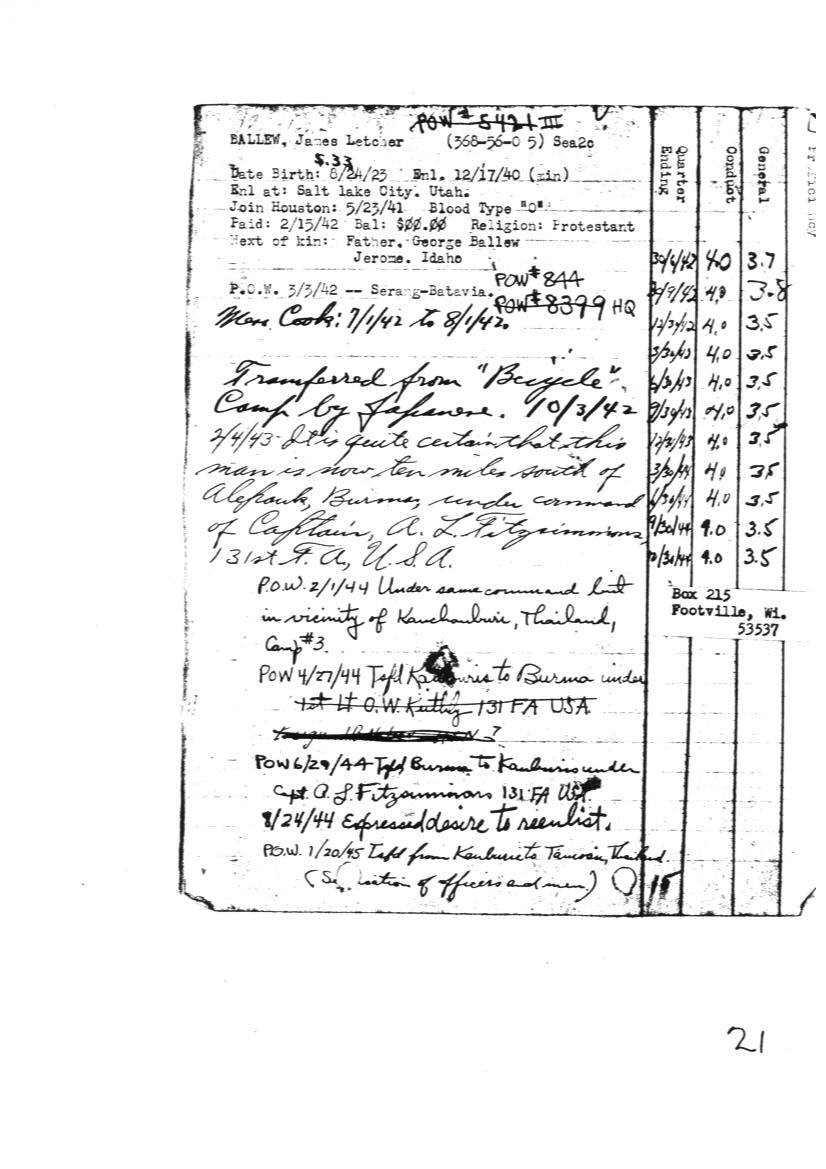 POW # 8421 III
BALLEW, James Letcher (368-56-0 5) Sea2c
5.33
Date Birth: 8/24/23 Enl. 12/17/40 (min)
Enl at: Salt lake City. Utah.
Join Houston: 5/23/41 Blood Type "O"
Paid: 2/15/42 Bal: $00.00 Religion: Protestant
Next of kin: Father. George Ballew
Jerome. Idaho
POW # 844
P.O.W. 3/3/42 -- Serang-Batavia.
POW # 8399 HQ
Mess Cook: 7/1/42 to 8/1/42.
Transferred from "Bcycle"
Camp by Japanese. 10/3/42
2/4/43 - It is quite certain that this
man is now ten miles south of
Alepauk, Burma, under command
of Captain, A. L. Fitzsimmons,
131st F. A, U. S. A.
P.O.W. 2/1/44 Under same command but
in vicinity of Kanchanburi, Thailand,
Camp #3.
POW 4/27/44 Tsfd to Burma under
1st Lt O.W. 131 FA USA
POW 6/29/44 Tsfd Burma to Kanburis under
Capt A. L. Fitzsimmons 131 FA USA
8/24/44 Expressed desire to reenlist.
P.O.W. 1/20/45 Tsfd from Kanburi to Thailand
of officers and men) 15
Quarter Ending Conduct General
30/6/42 4.0 3.7
30/9/42 4.0 3.8
12/31/42 4.0 3.5
3/30/43 4.0 3.5
6/30/43 4.0 3.5
9/30/43 4.0 3.5
12/31/43 4.0 3.5
3/30/44 4.0 35
6/30/44 4.0 3.5
9/30/44 4.0 3.5
12/30/44 4.0 3.5
Box 215
Footville, Wi.
53537
21